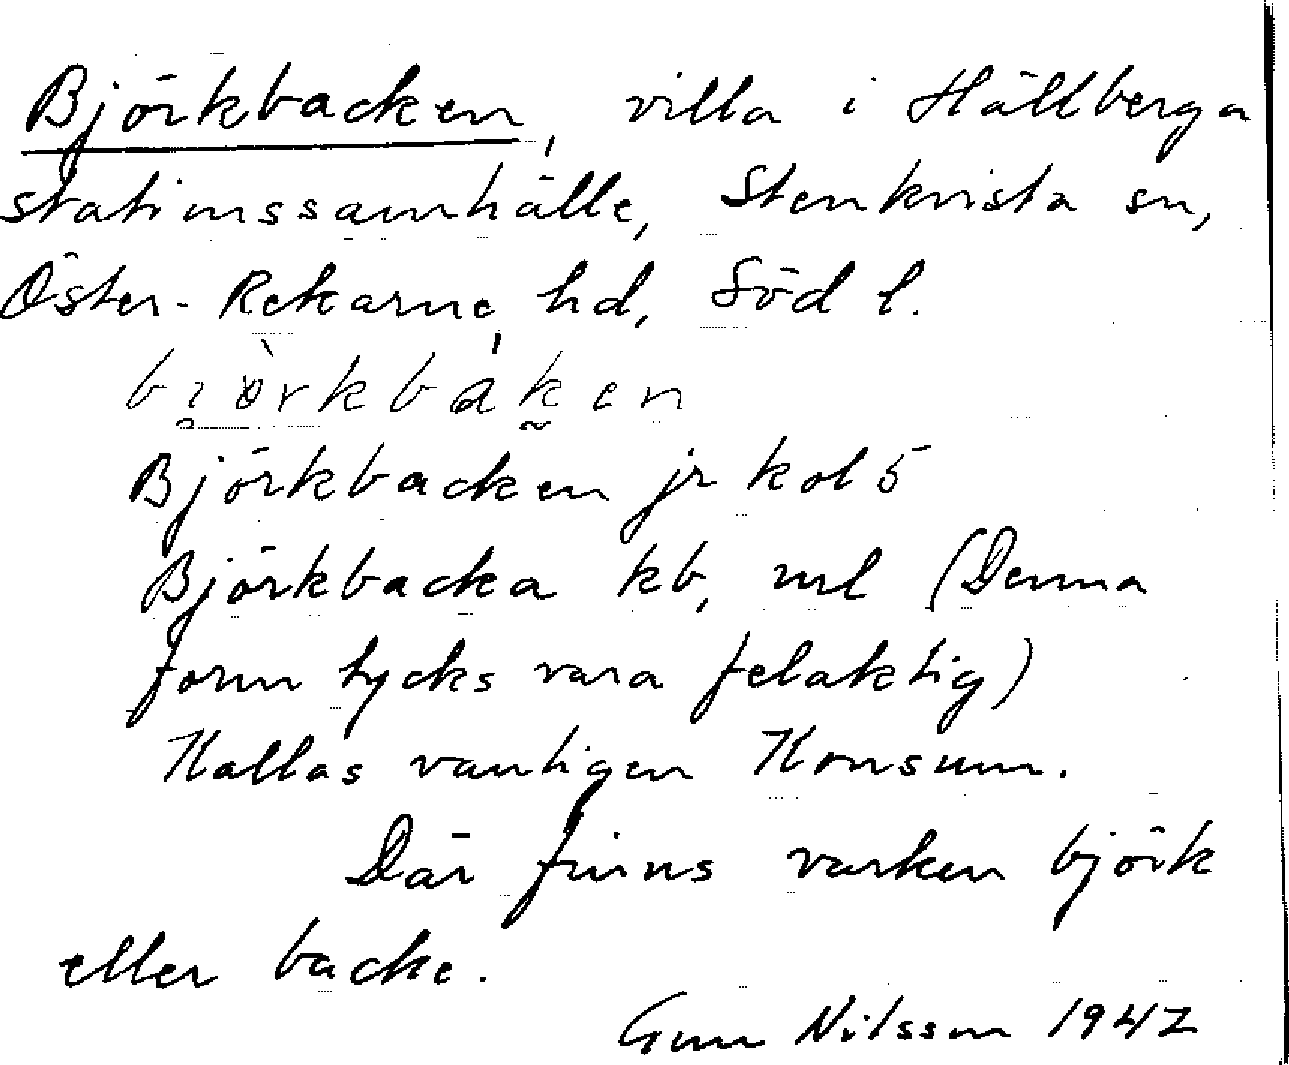 Björkbacken, villa i Hällberga
stationssamhälle, Stenkvista sn,
Öster-Rekarne hd, Söd l.
bi̯ö̀rkbák̰en
Björkbacken jr kol 5
Björkbacka kb, url (Denna
form tycks vara felaktig)
Kallas vanligen Konsum.
Där finns varken björk
eller backe.
Gun Nilsson 1942